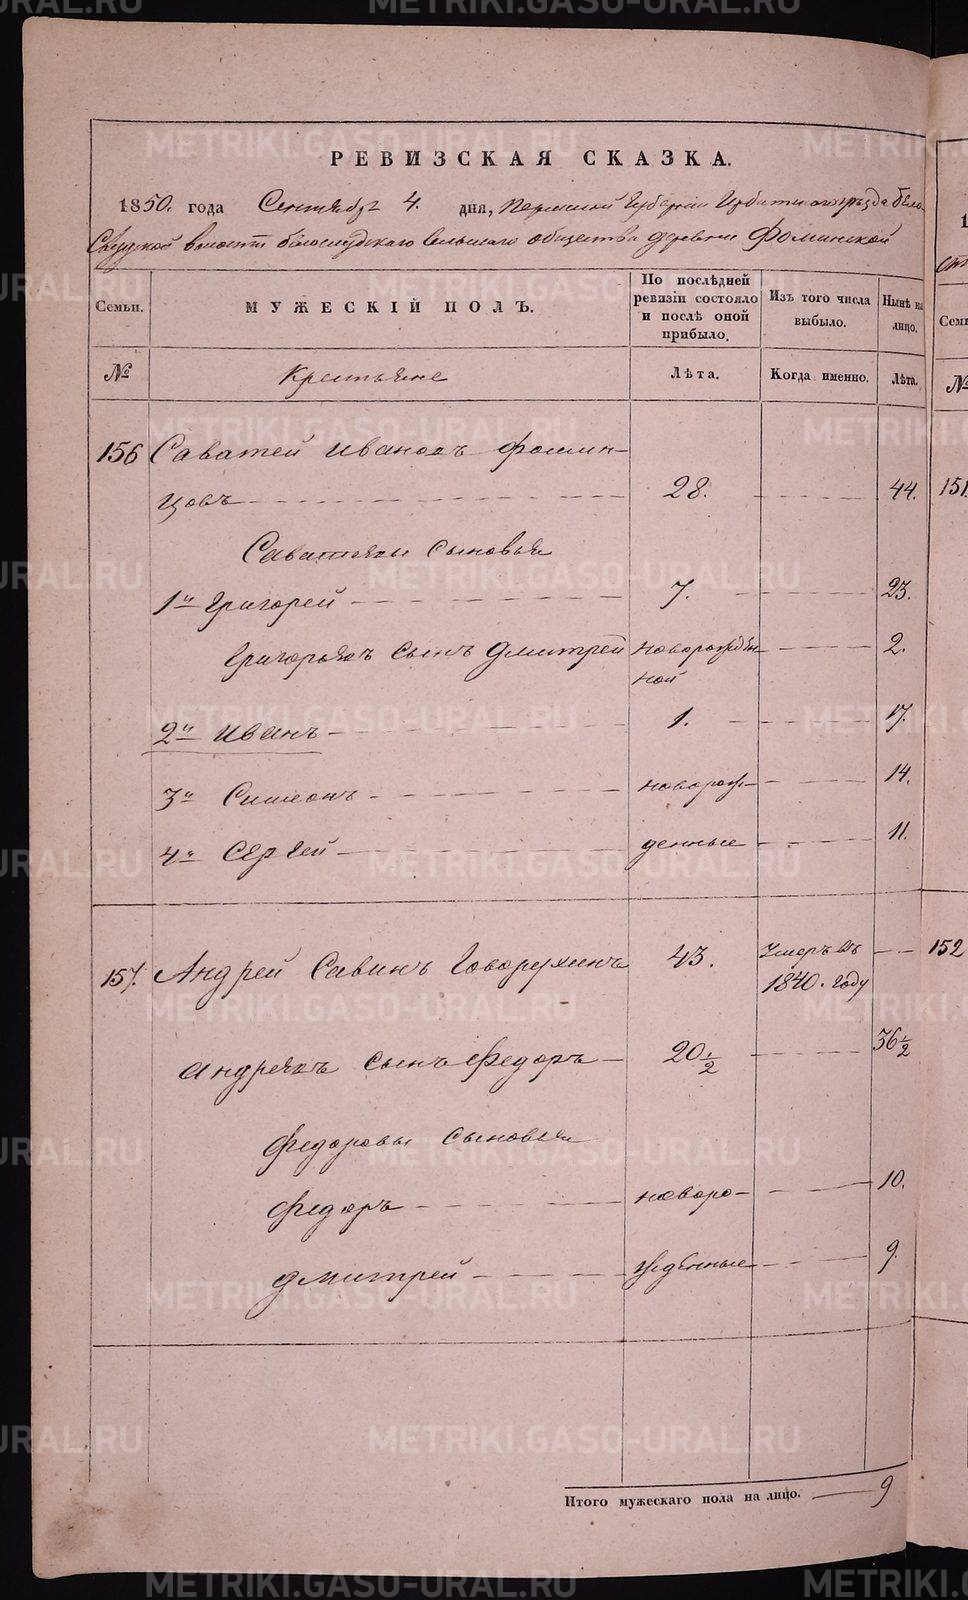 METRIKI.GASO-URAL.RU
РЕВИЗСКАЯ СКАЗКА.
1850. года Сентября 4. дня, Пермской Губернии Ирбитскаго уѣзда Бело-
Слудской волости бѣлослудскаго сельскаго общества деревни Фоминской
Семьи.
МУЖЕСКІЙ ПОЛЪ.
По послѣдней ревизіи состояло и послѣ оной прибыло.
Изъ того числа выбыло.
Нынѣ на лицо.
№ Крестьяне Лѣта. Когда именно. Лѣта.
156 Саватей Ивановъ Фомин-
цовъ 28. 44.
Саватеявы сыновья
1й Григорей 7. 23.
Григорьявъ сынъ Дмитрей новорожден- 2.
ной
2й Иванъ 1. 17.
3й Симеонъ новорож- 14.
4й Сергей денные 11.
157. Андрей Савинъ Говорухинъ 43. Умеръ въ
1840. году
Андреявъ сынъ Федоръ 20½ 36½
Федоровы сыновья
Федоръ новоро- 10.
Дмитрей жденные 9.
Итого мужескаго пола на лицо. 9
№
151.
152